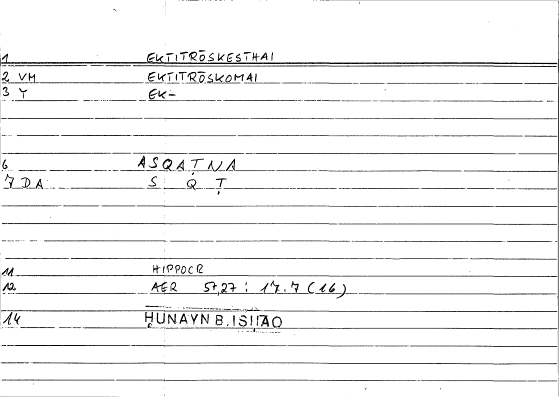 1 EKTITRŌSKESTHAI
2 VM EKTITRŌSKOMAI
3 Y EK-
6 ASQAṬNA
7 DA S Q Ṭ
11 HIPPOCR
12 AER 57,27 : 17.7 (16)
14 ḤUNAYN B. ISḤAQ